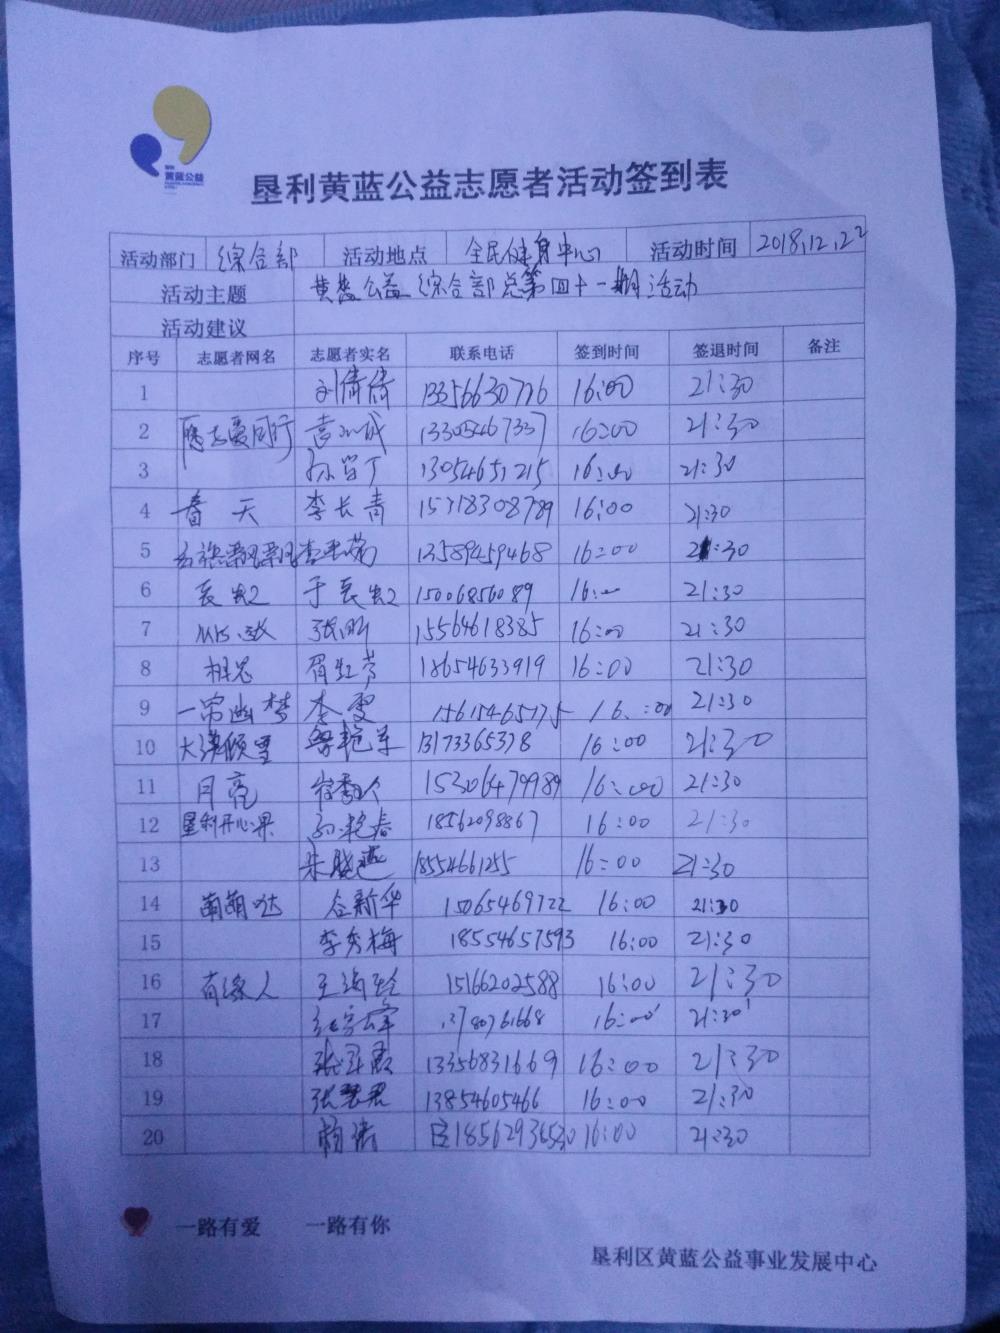 黄蓝公益
垦利黄蓝公益志愿者活动签到表
活动部门 综合部 活动地点 全民健身中心 活动时间 2018.12.22
活动主题 黄蓝公益综合部总第四十一期活动
活动建议
序号 志愿者网名 志愿者实名 联系电话 签到时间 签退时间 备注
1 刘倩倩 13356630776 16:00 21:30
2 13305467337 16:00 21:30
3 13054651215 16:00 21:30
4 春天 李长青 15318308789 16:00 21:30
5 13589459468 16:00 21:30
6 15006856089 21:30
7 15564618385 16:00 21:30
8 相思 18654633919 16:00 21:30
9 一帘幽梦 李雯 16:00 21:30
10 13173365378 16:00 21:30
11 月亮 15306479989 16:00 21:30
12 垦利开心果 孙艳春 18562098867 16:00 21:30
13 朱晓燕 18554661255 16:00 21:30
14 萌萌哒 仝新华 15065469722 16:00 21:30
15 李秀梅 18554657593 16:00 21:30
16 有缘人 15166202588 16:00 21:30
17 13780761668 16:00 21:30
18 13356831669 16:00 21:30
19 13854605466 16:00 21:30
20 18562936530 16:00 21:30
一路有爱 一路有你
垦利区黄蓝公益事业发展中心